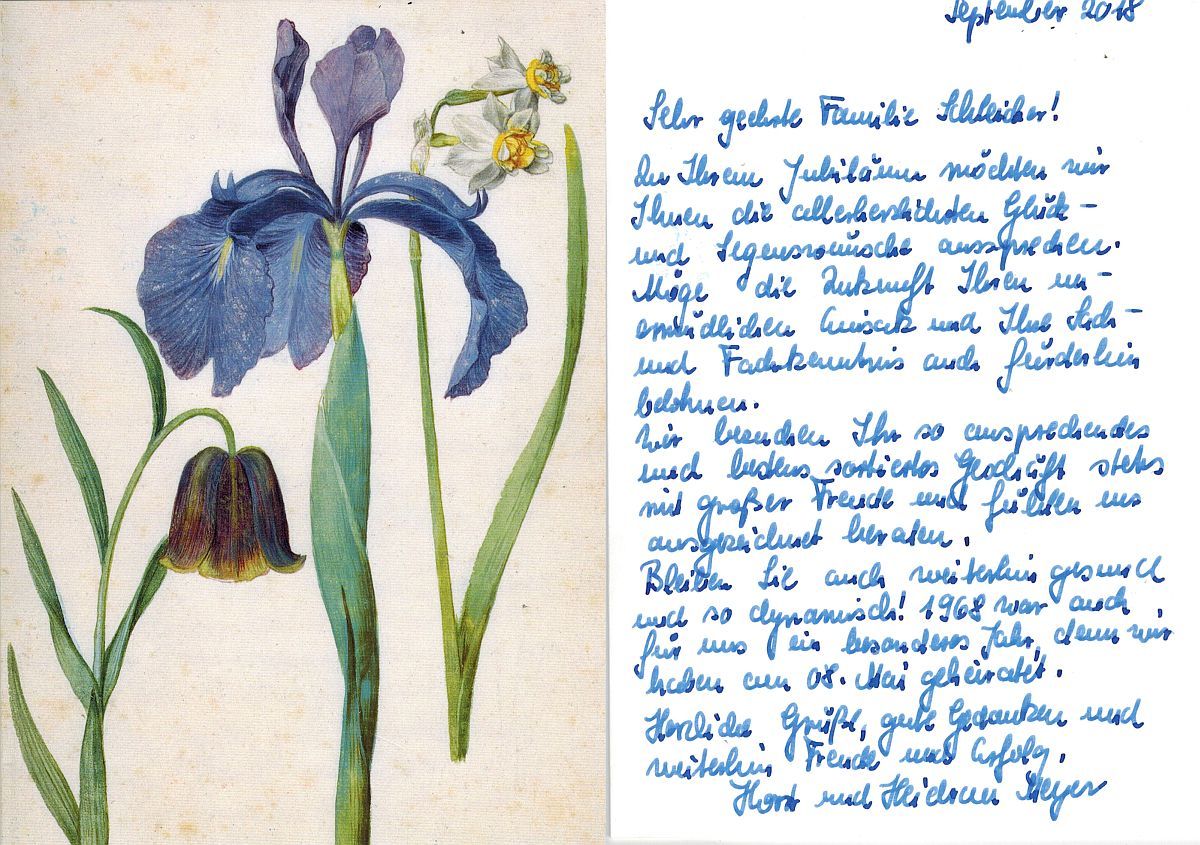 September 2018
Sehr geehrte Familie Schleicher!
Zu Ihrem Jubiläum möchten wir
Ihnen die allerherzlichsten Glück-
und Segenswünsche aussprechen.
Möge die Zukunft Ihren un-
ermüdlichen Einsatz und Ihre Sach-
und Fachkenntnis auch fürderhin
belohnen.
Wir besuchen Ihr so ansprechendes
und bestens sortiertes Geschäft stets
mit großer Freude und fühlen uns
ausgezeichnet beraten.
Bleiben Sie auch weiterhin gesund
und so dynamisch! 1968 war auch
für uns ein besonderes Jahr, denn wir
haben am 08. Mai geheiratet.
Herzliche Grüße, gute Gedanken und
weiterhin Freude und Erfolg.
Horst und Heidrun Meyer